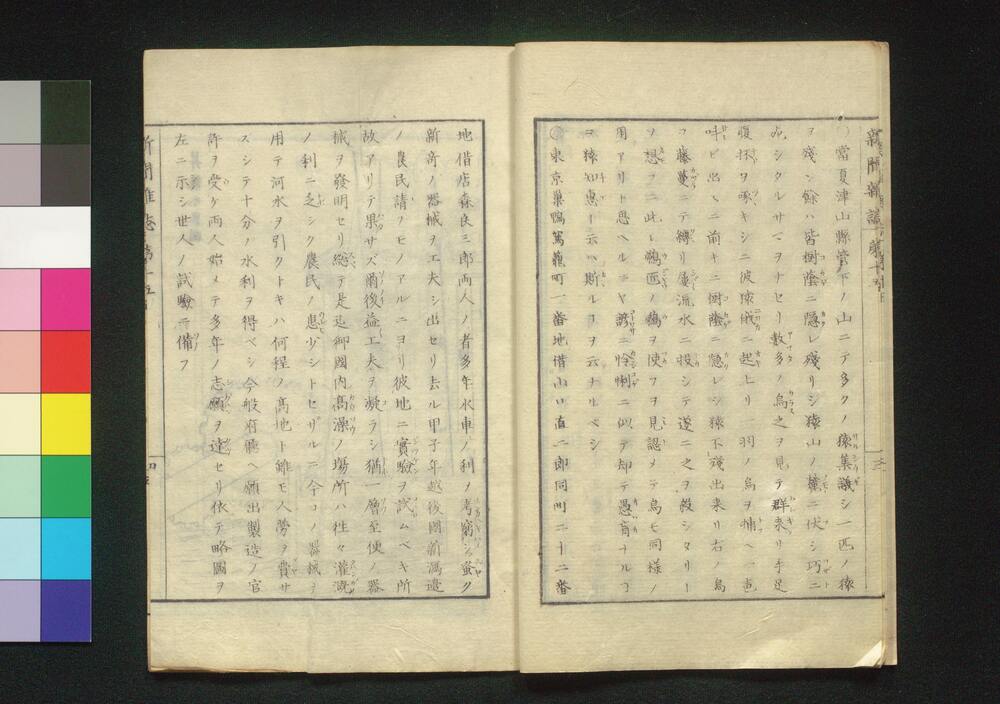 新聞雜誌 第十五
○當夏津山縣管下ノ山ニテ多クノ猿集議シ一匹ノ猿
ヲ殘シ餘ハ皆樹陰ニ隱レ殘リシ猿山ノ麓ニ伏シ巧ニ
死シタルサマヲナセリ數多ノ烏之ヲ見テ群來リ手足
腹抔ヲ啄キシニ彼猿俄ニ起上リ一羽ノ烏ヲ捕ヘ一声
叫ビ出スニ前キニ樹陰ニ隱レシ猿不殘出来リ右ノ烏
ヲ藤蔓ニテ縛リ流水ニ投シテ遂ニ之ヲ殺シタリ
ヲ想フニ此レ鵜匠ノ鵜ヲ使フヲ見認メテ烏モ同様ノ
用アリト思ヘルニヤ諺ニ怜悧ニ似テ却テ愚盲ナルコ
ヲ猿知恵ト云ハ斯ルヲ云ナルベシ
○東京巣鴨駕籠町一番地借山口直二郎同町二十二番
地借店森良三郎両人ノ者多年水車ノ利ヲ考窮シ蚤ク
新奇ノ器械ヲ工夫シ出セリ去ル甲子年越後國新潟邉
ノ農民請フヒノアルニヨリ彼地ニ實驗ヲ試ムベキ所
故アリテ果サズ爾後益工夫ヲ凝ラシ猶一層至便ノ器
械ヲ發明セリ總テ是迠御國内高澡ノ塲所ハ往々灌漑
ノ利ニ乏シク農民ノ患少シトセザルニ今コノ器械ヲ
用テ河水ヲ引クトキハ何程ノ高地ト雖モ人勞ヲ費サ
ズシテ十分ノ水利ヲ得ベシ今般府廳ヘ願出製造ノ官
許ヲ受ケ両人始メテ多年ノ志願ヲ達セリ依テ略圖ヲ
左ニ示シ世人ノ試驗ニ備フ
新聞雜誌 第十五